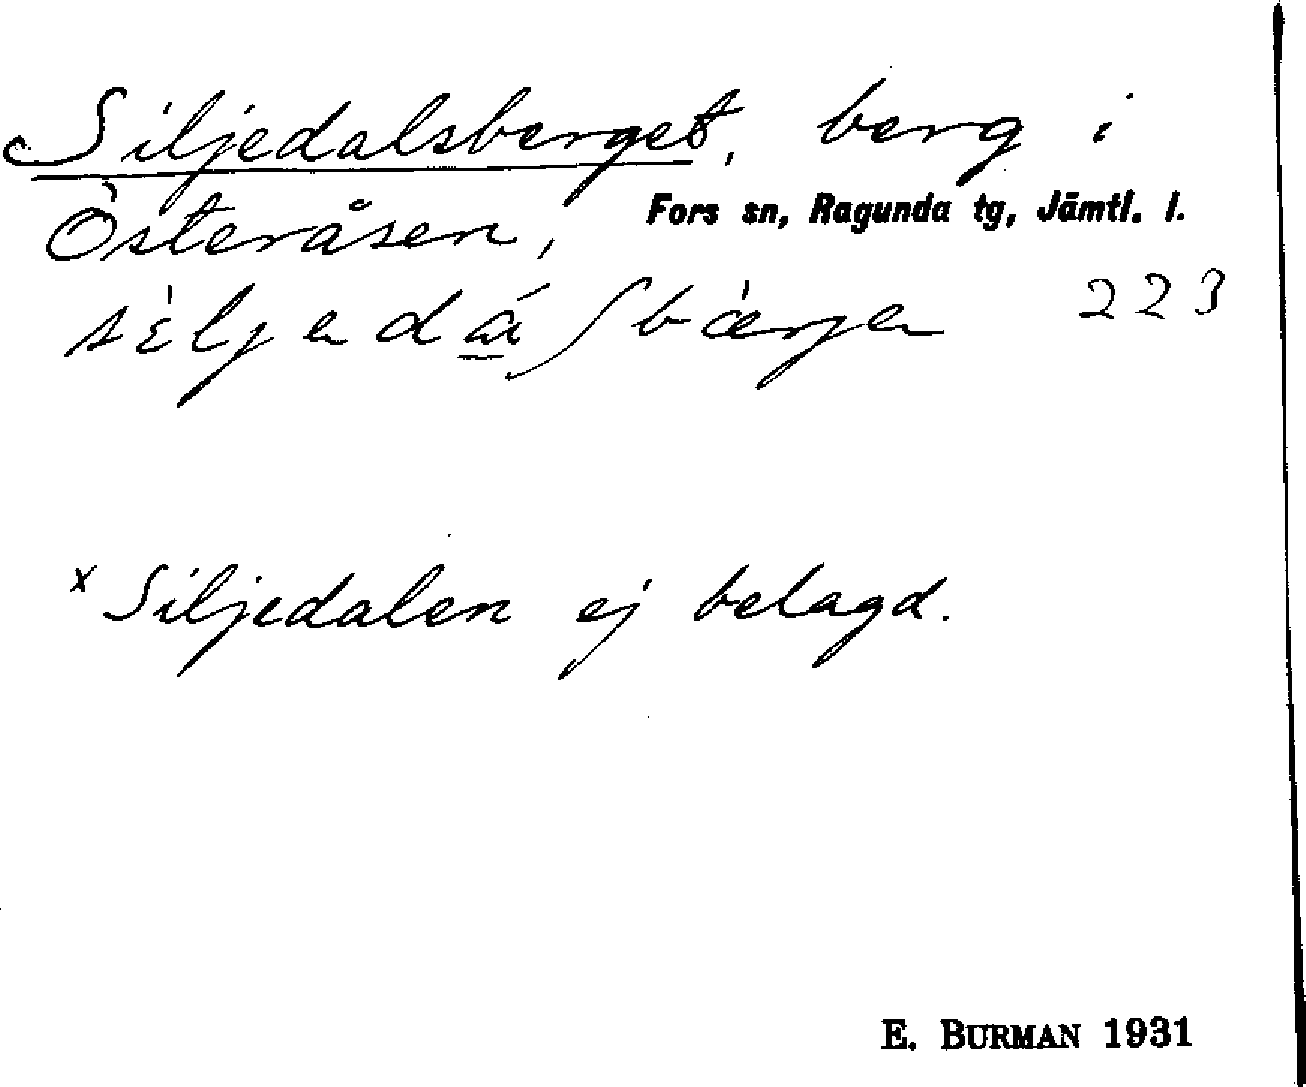 Siljedalsberget, berg i
Österåsen, Fors sn, Ragunda tg, Jämtl. l.
223
x Siljedalen ej belagd.
E. BURMAN 1931